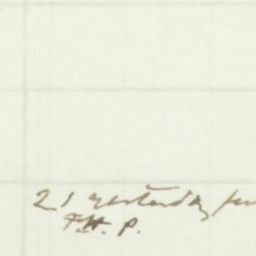 21 yesterday
F.H.P.